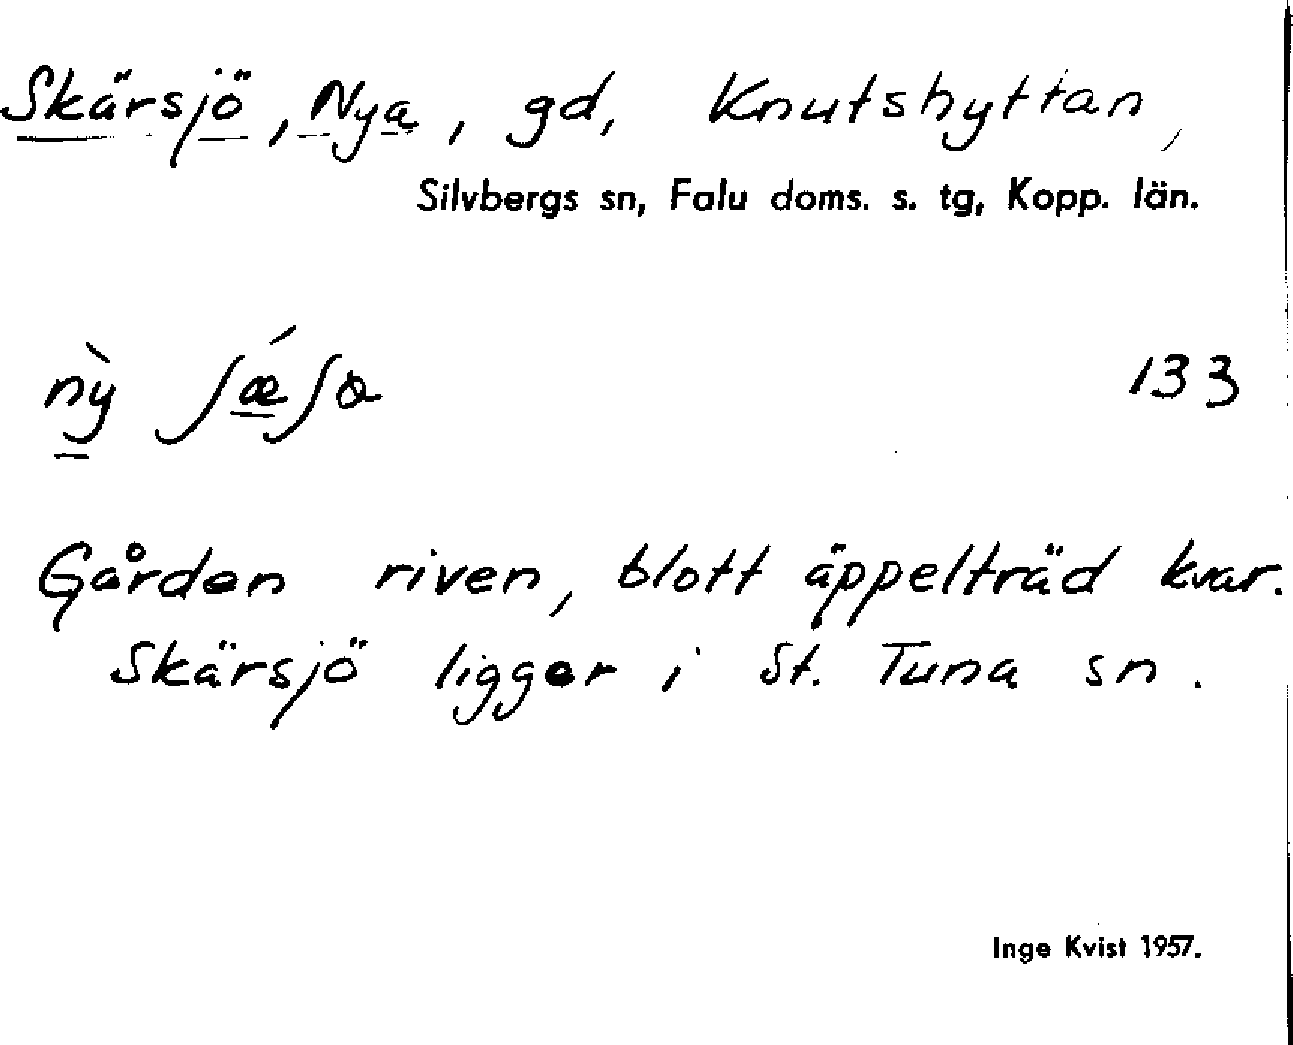 Skärsjö, Nya, gd, Knutshyttan,
Silvbergs sn, Falu doms. s. tg, Kopp. län.
133
Gården riven, blott äppelträd kvar.
Skärsjö ligger i St. Tuna sn.
Inge Kvist 1957.